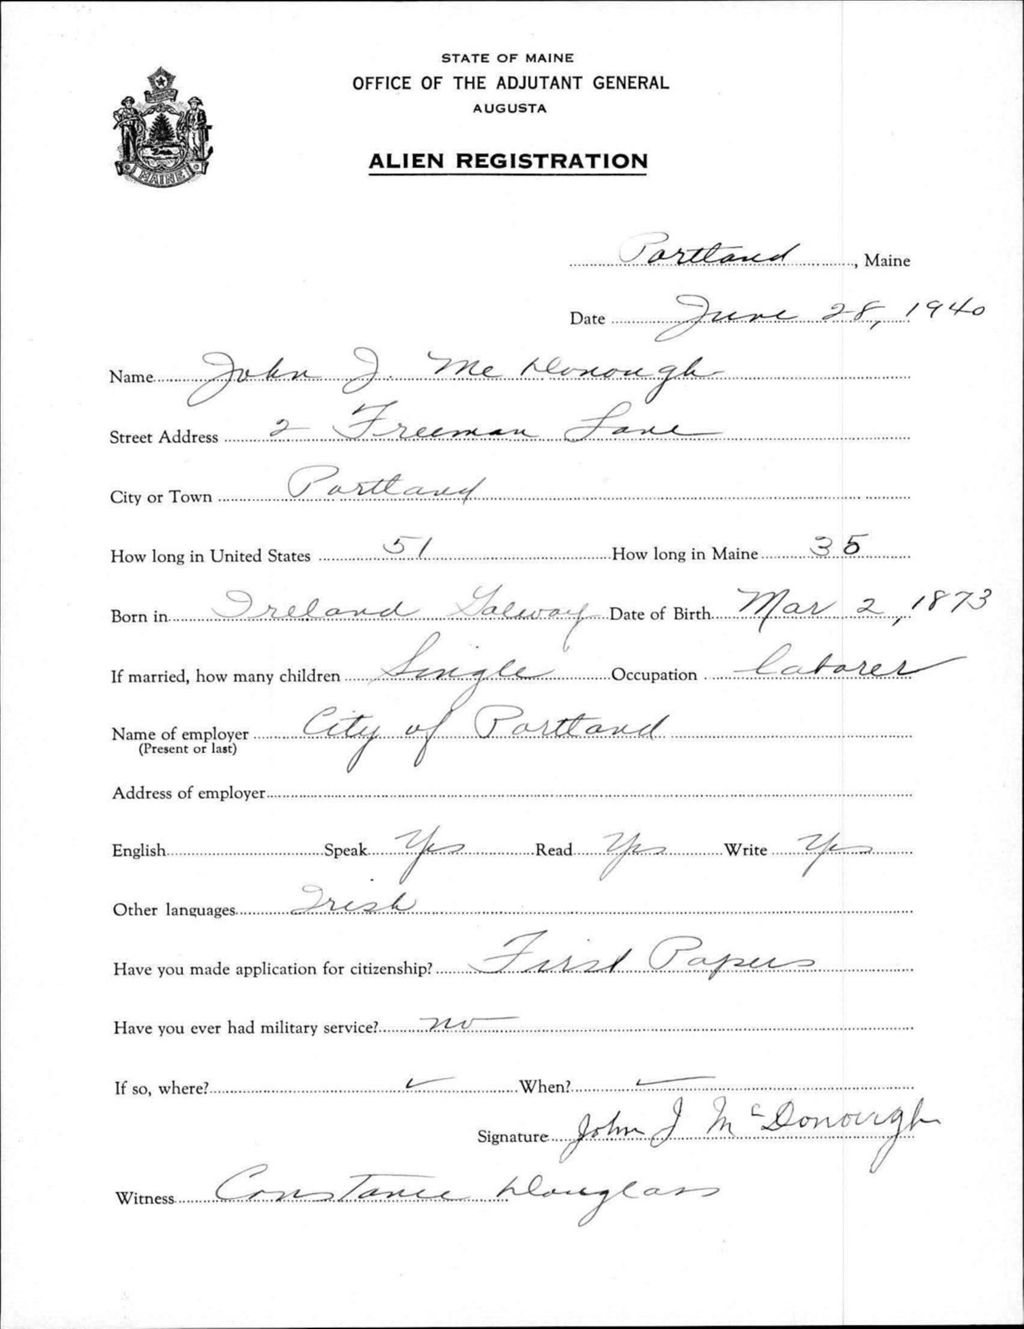 STATE OF MAINE
OFFICE OF THE ADJUTANT GENERAL
AUGUSTA
ALIEN REGISTRATION
MAINE
Portland, Maine
Date June 28, 1940
Name John J. McDonough
Street Address 2 Freeman Lane
City or Town Portland
How long in United States 51 How long in Maine 35
Born in Ireland Galway Date of Birth Mar 2, 1873
If married, how many children Single Occupation laborer
Name of employer City of Portland
(Present or last)
Address of employer
English Speak Yes Read Yes Write Yes
Other languages Irish
Have you made application for citizenship? First Papers
Have you ever had military service? no
If so, where? ✓ When? ✓
Signature John J McDonough
Witness Constance Douglass